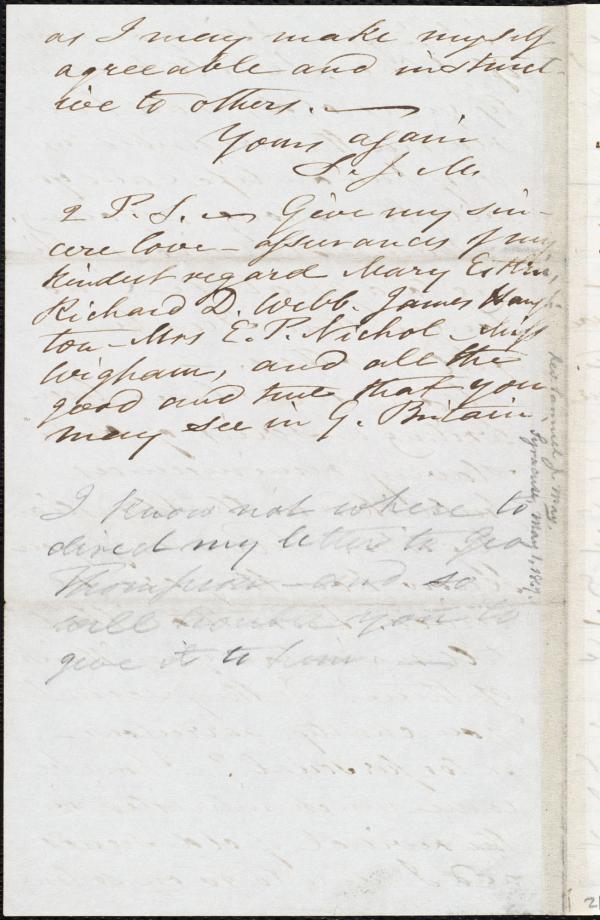 as I may make myself
agreeable and instruct-
ive to others. —
Yours again
S. J. M.
2 P. S. — Give my sin-
cere love – assurances of my
kindest regard Mary Estlin,
Richard D. Webb. James Haugh-
ton – Mrs E. P. Nichol – Miss
Wigham, and all the
good and true that you
may see in G. Britain
I know not where to
direct my letter to Geo
Thompson – and so
will trouble you to
give it to him. —
Rev. Samuel J. May.
Syracuse May 1, 1859.
2